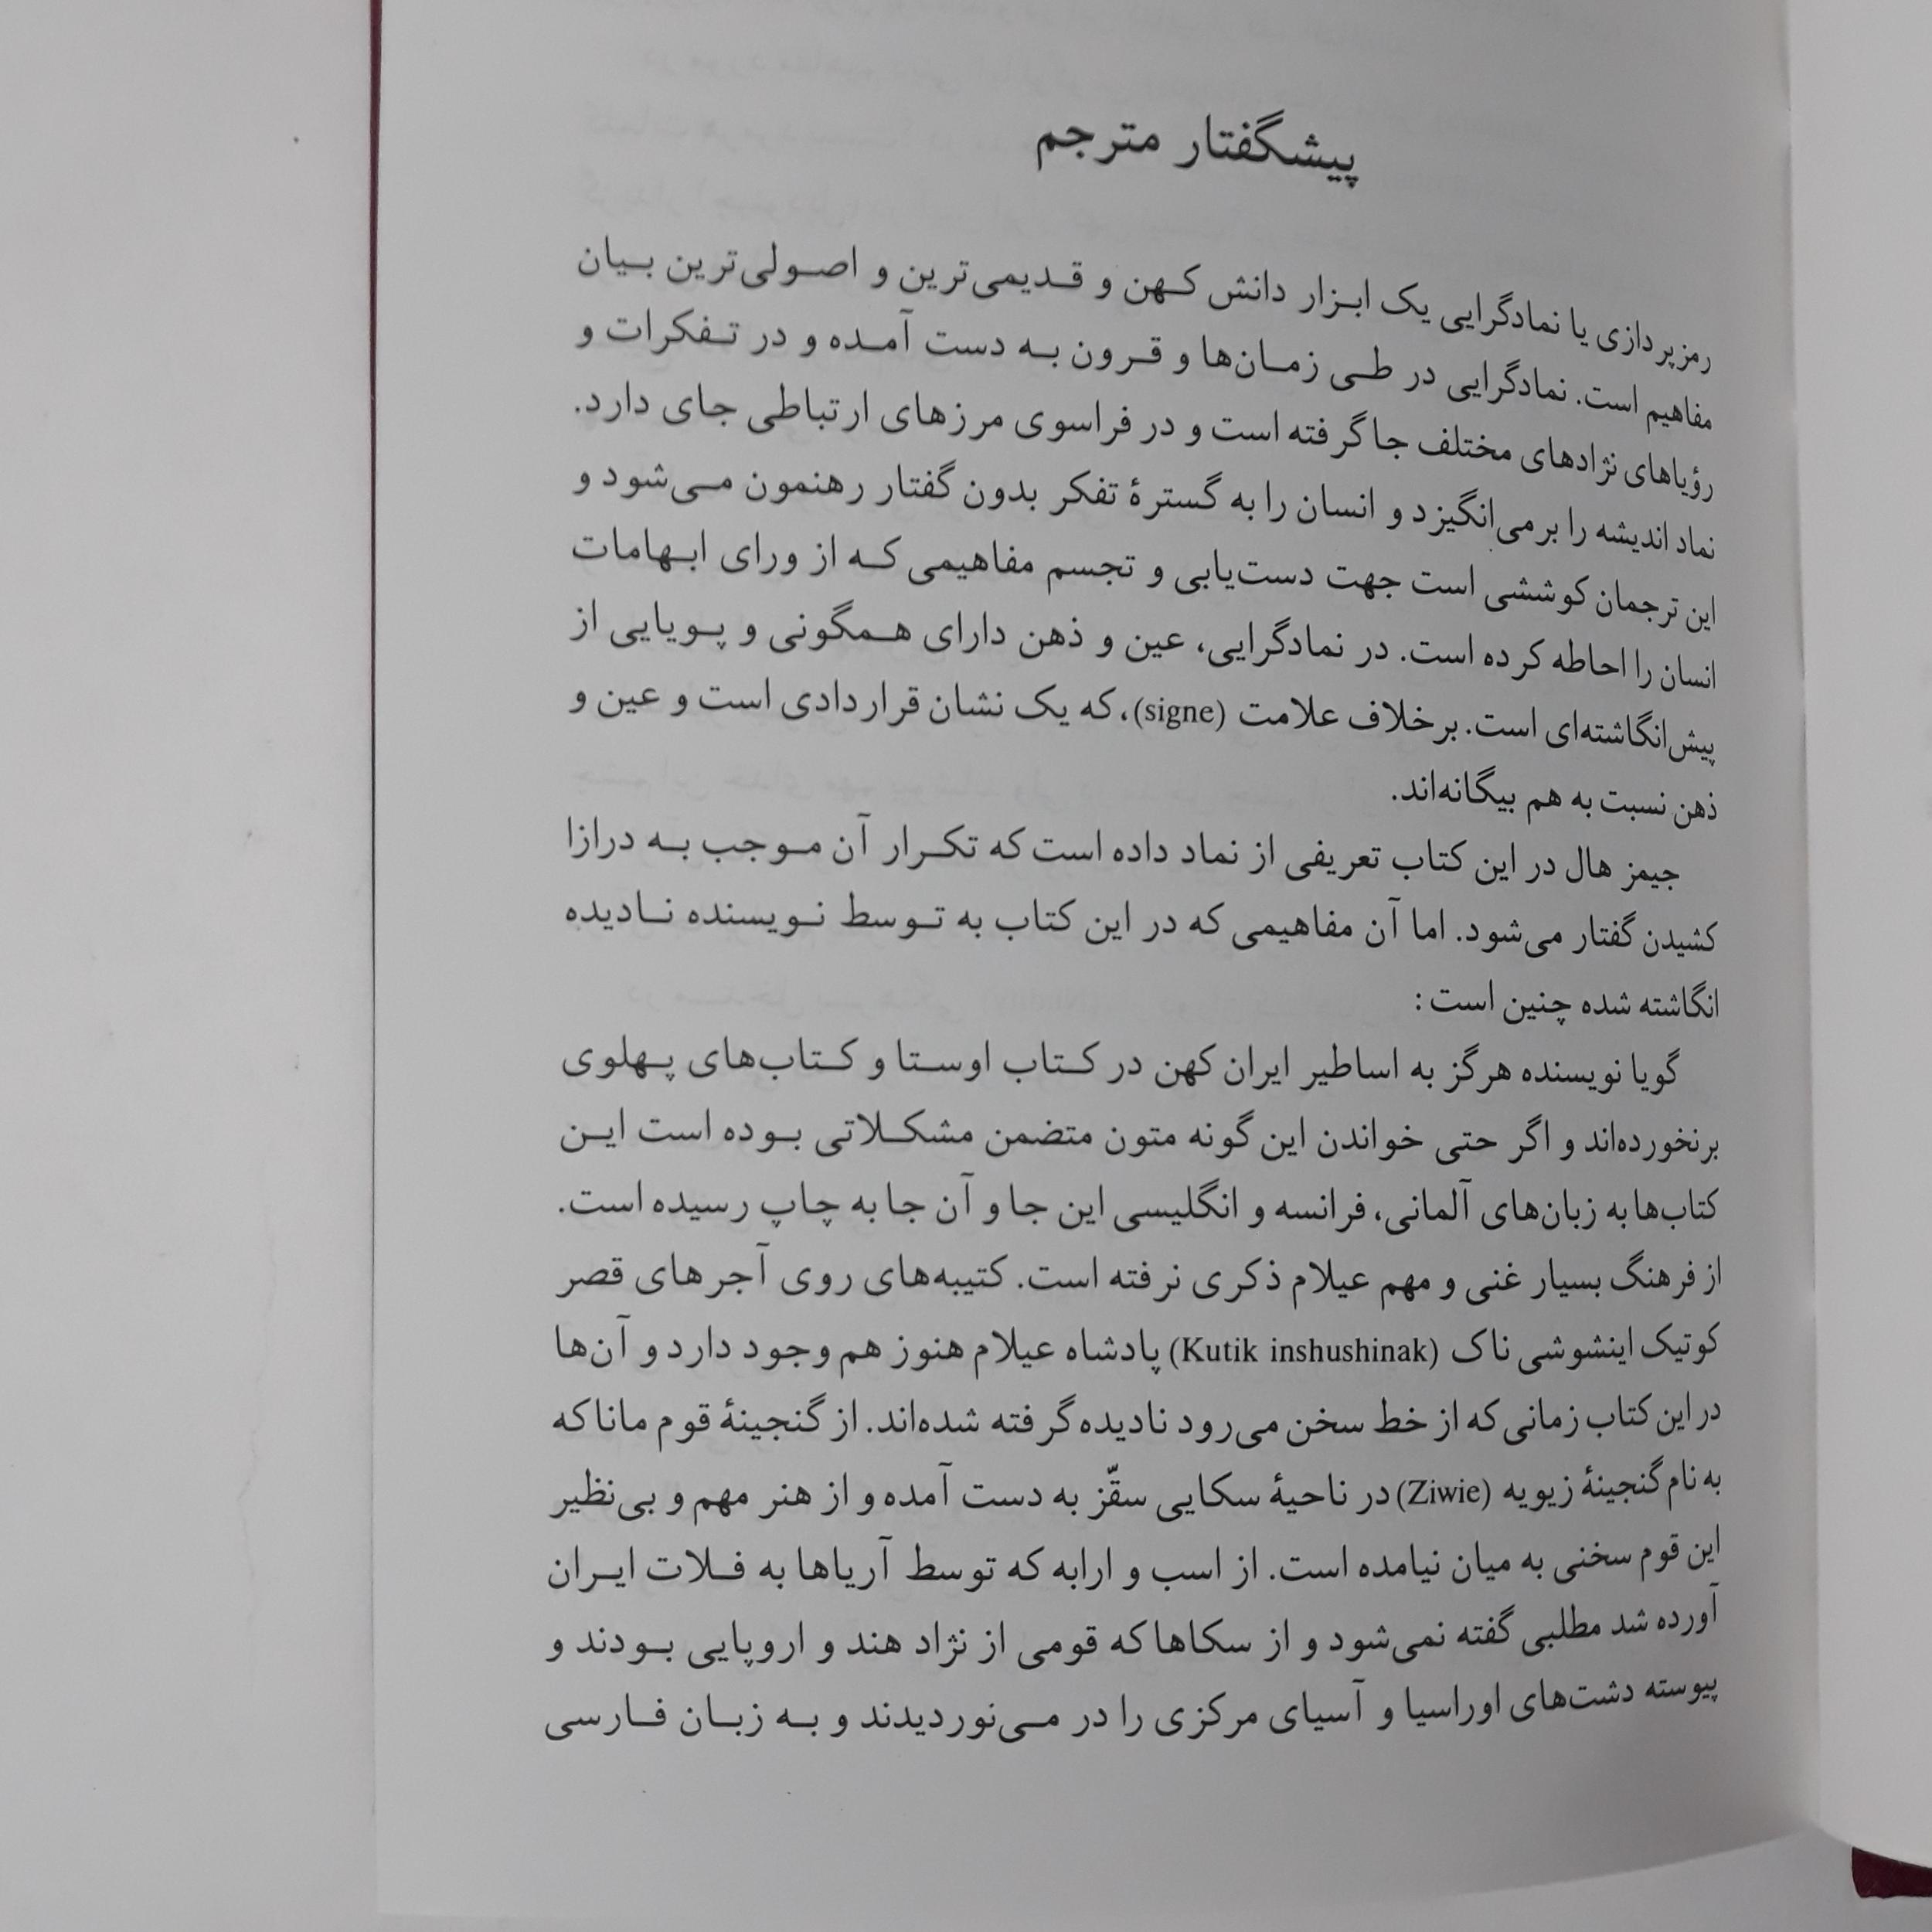 پیشگفتار مترجم
رمزپردازی یا نمادگرایی یک ابزار دانش کهن و قدیمی‌ترین و اصولی‌ترین بیان
مفاهیم است. نمادگرایی در طی زمان‌ها و قرون به دست آمده و در تفکرات و
رؤیاهای نژادهای مختلف جا گرفته است و در فراسوی مرزهای ارتباطی جای دارد.
نماد اندیشه را برمی‌انگیزد و انسان را به گسترهٔ تفکر بدون گفتار رهنمون می‌شود و
این ترجمان کوششی است جهت دست‌یابی و تجسم مفاهیمی که از ورای ابهامات
انسان را احاطه کرده است. در نمادگرایی، عین و ذهن دارای همگونی و پویایی از
پیش‌انگاشته‌ای است. برخلاف علامت (signe)، که یک نشان قراردادی است و عین و
ذهن نسبت به هم بیگانه‌اند.
جیمز هال در این کتاب تعریفی از نماد داده است که تکرار آن موجب به درازا
کشیدن گفتار می‌شود. اما آن مفاهیمی که در این کتاب به توسط نویسنده نادیده
انگاشته شده چنین است:
گویا نویسنده هرگز به اساطیر ایران کهن در کتاب اوستا و کتاب‌های پهلوی
برنخورده‌اند و اگر حتی خواندن این گونه متون متضمن مشکلاتی بوده است این
کتاب‌ها به زبان‌های آلمانی، فرانسه و انگلیسی این جا و آن جا به چاپ رسیده است.
از فرهنگ بسیار غنی و مهم عیلام ذکری نرفته است. کتیبه‌های روی آجرهای قصر
کوتیک اینشوشی ناک (Kutik inshushinak) پادشاه عیلام هنوز هم وجود دارد و آن‌ها
در این کتاب زمانی که از خط سخن می‌رود نادیده گرفته شده‌اند. از گنجینهٔ قوم مانا که
به نام گنجینهٔ زیویه (Ziwie) در ناحیهٔ سکایی سقّز به دست آمده و از هنر مهم و بی‌نظیر
این قوم سخنی به میان نیامده است. از اسب و ارابه که توسط آریاها به فلات ایران
آورده شد مطلبی گفته نمی‌شود و از سکاها که قومی از نژاد هند و اروپایی بودند و
پیوسته دشت‌های اوراسیا و آسیای مرکزی را در می‌نوردیدند و به زبان فارسی